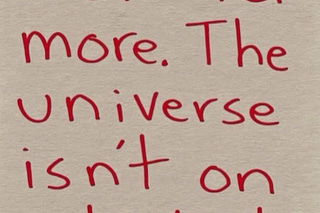 more. The
universe
isn't on